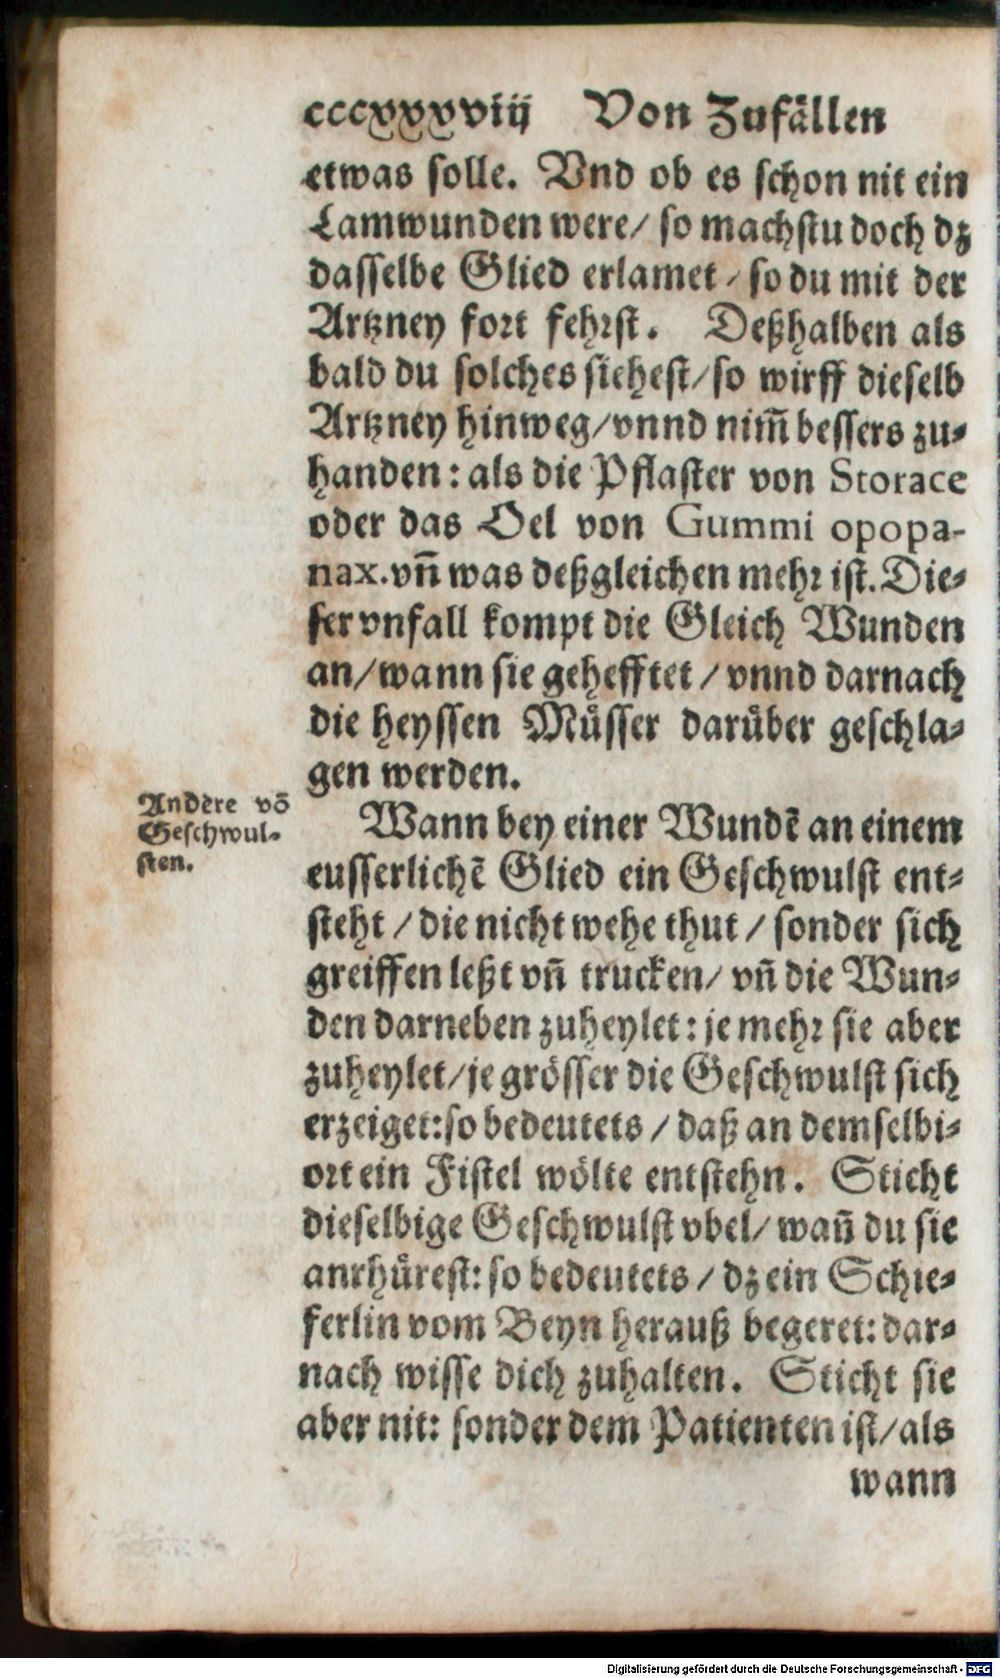 cccxxxviij Von Zufällen
etwas solle. Vnd ob es schon nit ein
Lamwunden were/ so machstu doch dz
dasselbe Glied erlamet/ so du mit der
Artzney fort fehrst. Deßhalben als
bald du solches siehest/ so wirff dieselb
Artzney hinweg/ vnnd nim̃ bessers zu-
handen: als die Pflaster von Storace
oder das Oel von Gummi opopa-
nax. vñ was deßgleichen mehr ist. Die-
ser vnfall kompt die Gleich Wunden
an/ wann sie gehefftet/ vnnd darnach
die heyssen Müsser darüber geschla-
gen werden.
Andere võ
Geschwul-
sten.
Wann bey einer Wundẽ an einem
eusserlichẽ Glied ein Geschwulst ent-
steht/ die nicht wehe thut/ sonder sich
greiffen leßt vñ trucken/ vñ die Wun-
den darneben zuheylet: je mehr sie aber
zuheylet/ je grösser die Geschwulst sich
erzeiget: so bedeutets/ daß an demselbi-
ort ein Fistel wölte entstehn. Sticht
dieselbige Geschwulst vbel/ wañ du sie
anrhürest: so bedeutets/ dz ein Schie-
ferlin vom Beyn herauß begeret: dar-
nach wisse dich zuhalten. Sticht sie
aber nit: sonder dem Patienten ist/ als
wann
Digitalisierung gefördert durch die Deutsche Forschungsgemeinschaft - DFG